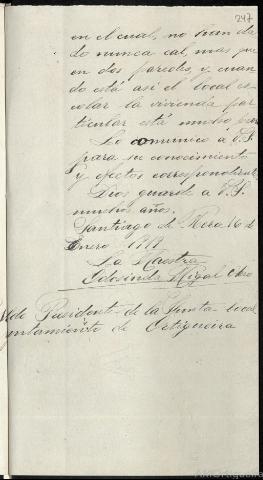 247
en el cual, no han da
do nunca cal, mas que
en dos paredes, y cuan
do está así el local es
colar la vivienda par
ticular está mucho peor
Lo comunico á V.S.
para su conocimiento
y efectos correspondientes
Dios guarde á V.S.
muchos años.
Santiago de Mera 16 de
Enero 1919.
La Maestra
Mugal
lde Presidente de la Junta local
yuntamiento de Ortigueira